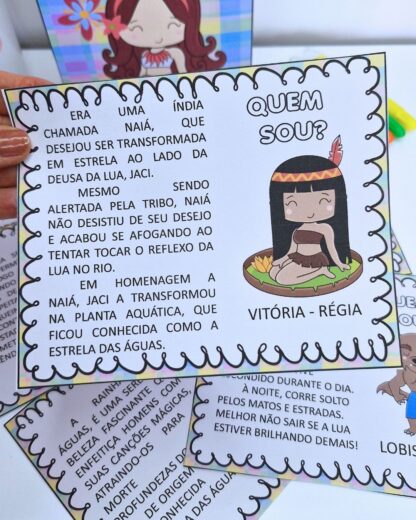 ERA UMA ÍNDIA
CHAMADA NAIÁ, QUE
DESEJOU SER TRANSFORMADA
EM ESTRELA AO LADO DA
DEUSA DA LUA, JACI.
MESMO SENDO
ALERTADA PELA TRIBO, NAIÁ
NÃO DESISTIU DE SEU DESEJO
E ACABOU SE AFOGANDO AO
TENTAR TOCAR O REFLEXO DA
LUA NO RIO.
EM HOMENAGEM A
NAIÁ, JACI A TRANSFORMOU
NA PLANTA AQUÁTICA, QUE
FICOU CONHECIDA COMO A
ESTRELA DAS ÁGUAS.
QUEM
SOU?
VITÓRIA - RÉGIA
A
ÁGUAS, É UMA
BELEZA FASCINANTE
ENFEITIÇA HOMENS COM
SUAS CANÇÕES MÁGICAS,
ATRAINDO-OS PARA
MORTE
PROFUNDEZAS
DE ORIGEM
DAS ÁGUAS
DURANTE O DIA.
À NOITE, CORRE SOLTO
PELOS MATOS E ESTRADAS.
MELHOR NÃO SAIR SE A LUA
ESTIVER BRILHANDO DEMAIS!